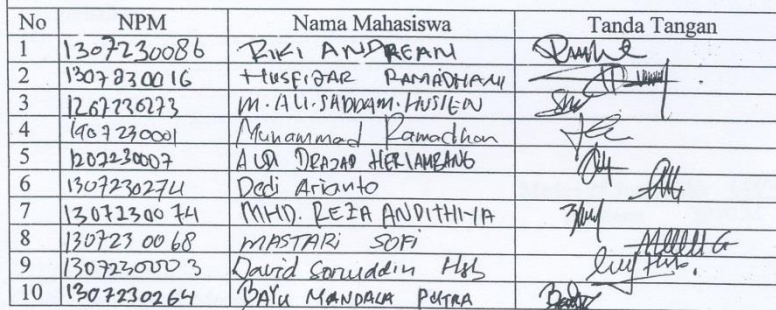 No NPM Nama Mahasiswa Tanda Tangan
1 1307230086 RIKI ANDREAN
2 1307230016 HUSFIZAR RAMADHANI
3 1207230273 M. ALI. SADDAM. HUSIEN
4 1907230001 Muhammad Ramadhan
5 1207230007 DRAJAD HERIAMBANG
6 1307230274 Dedi Arianto
7 1307230074 MHD. REZA ANDITHIYA
8 1307230068 MASTARI SOFI
9 1307230003 David Soruddin Hsb
10 1307230264 BAYU MANDALA PUTRA